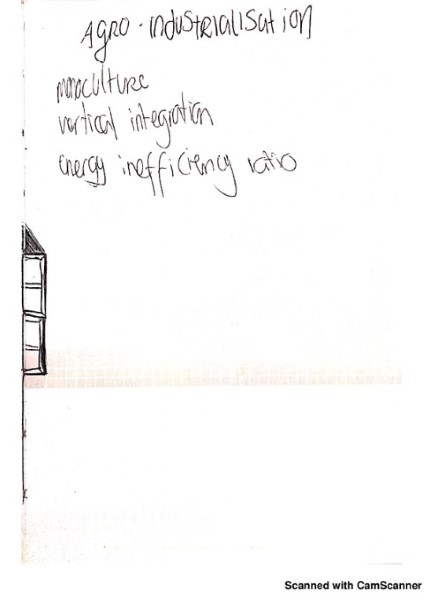 AGRO-INDUSTRIALISATION
monoculture
vertical integration
energy inefficiency ratio
Scanned with CamScanner